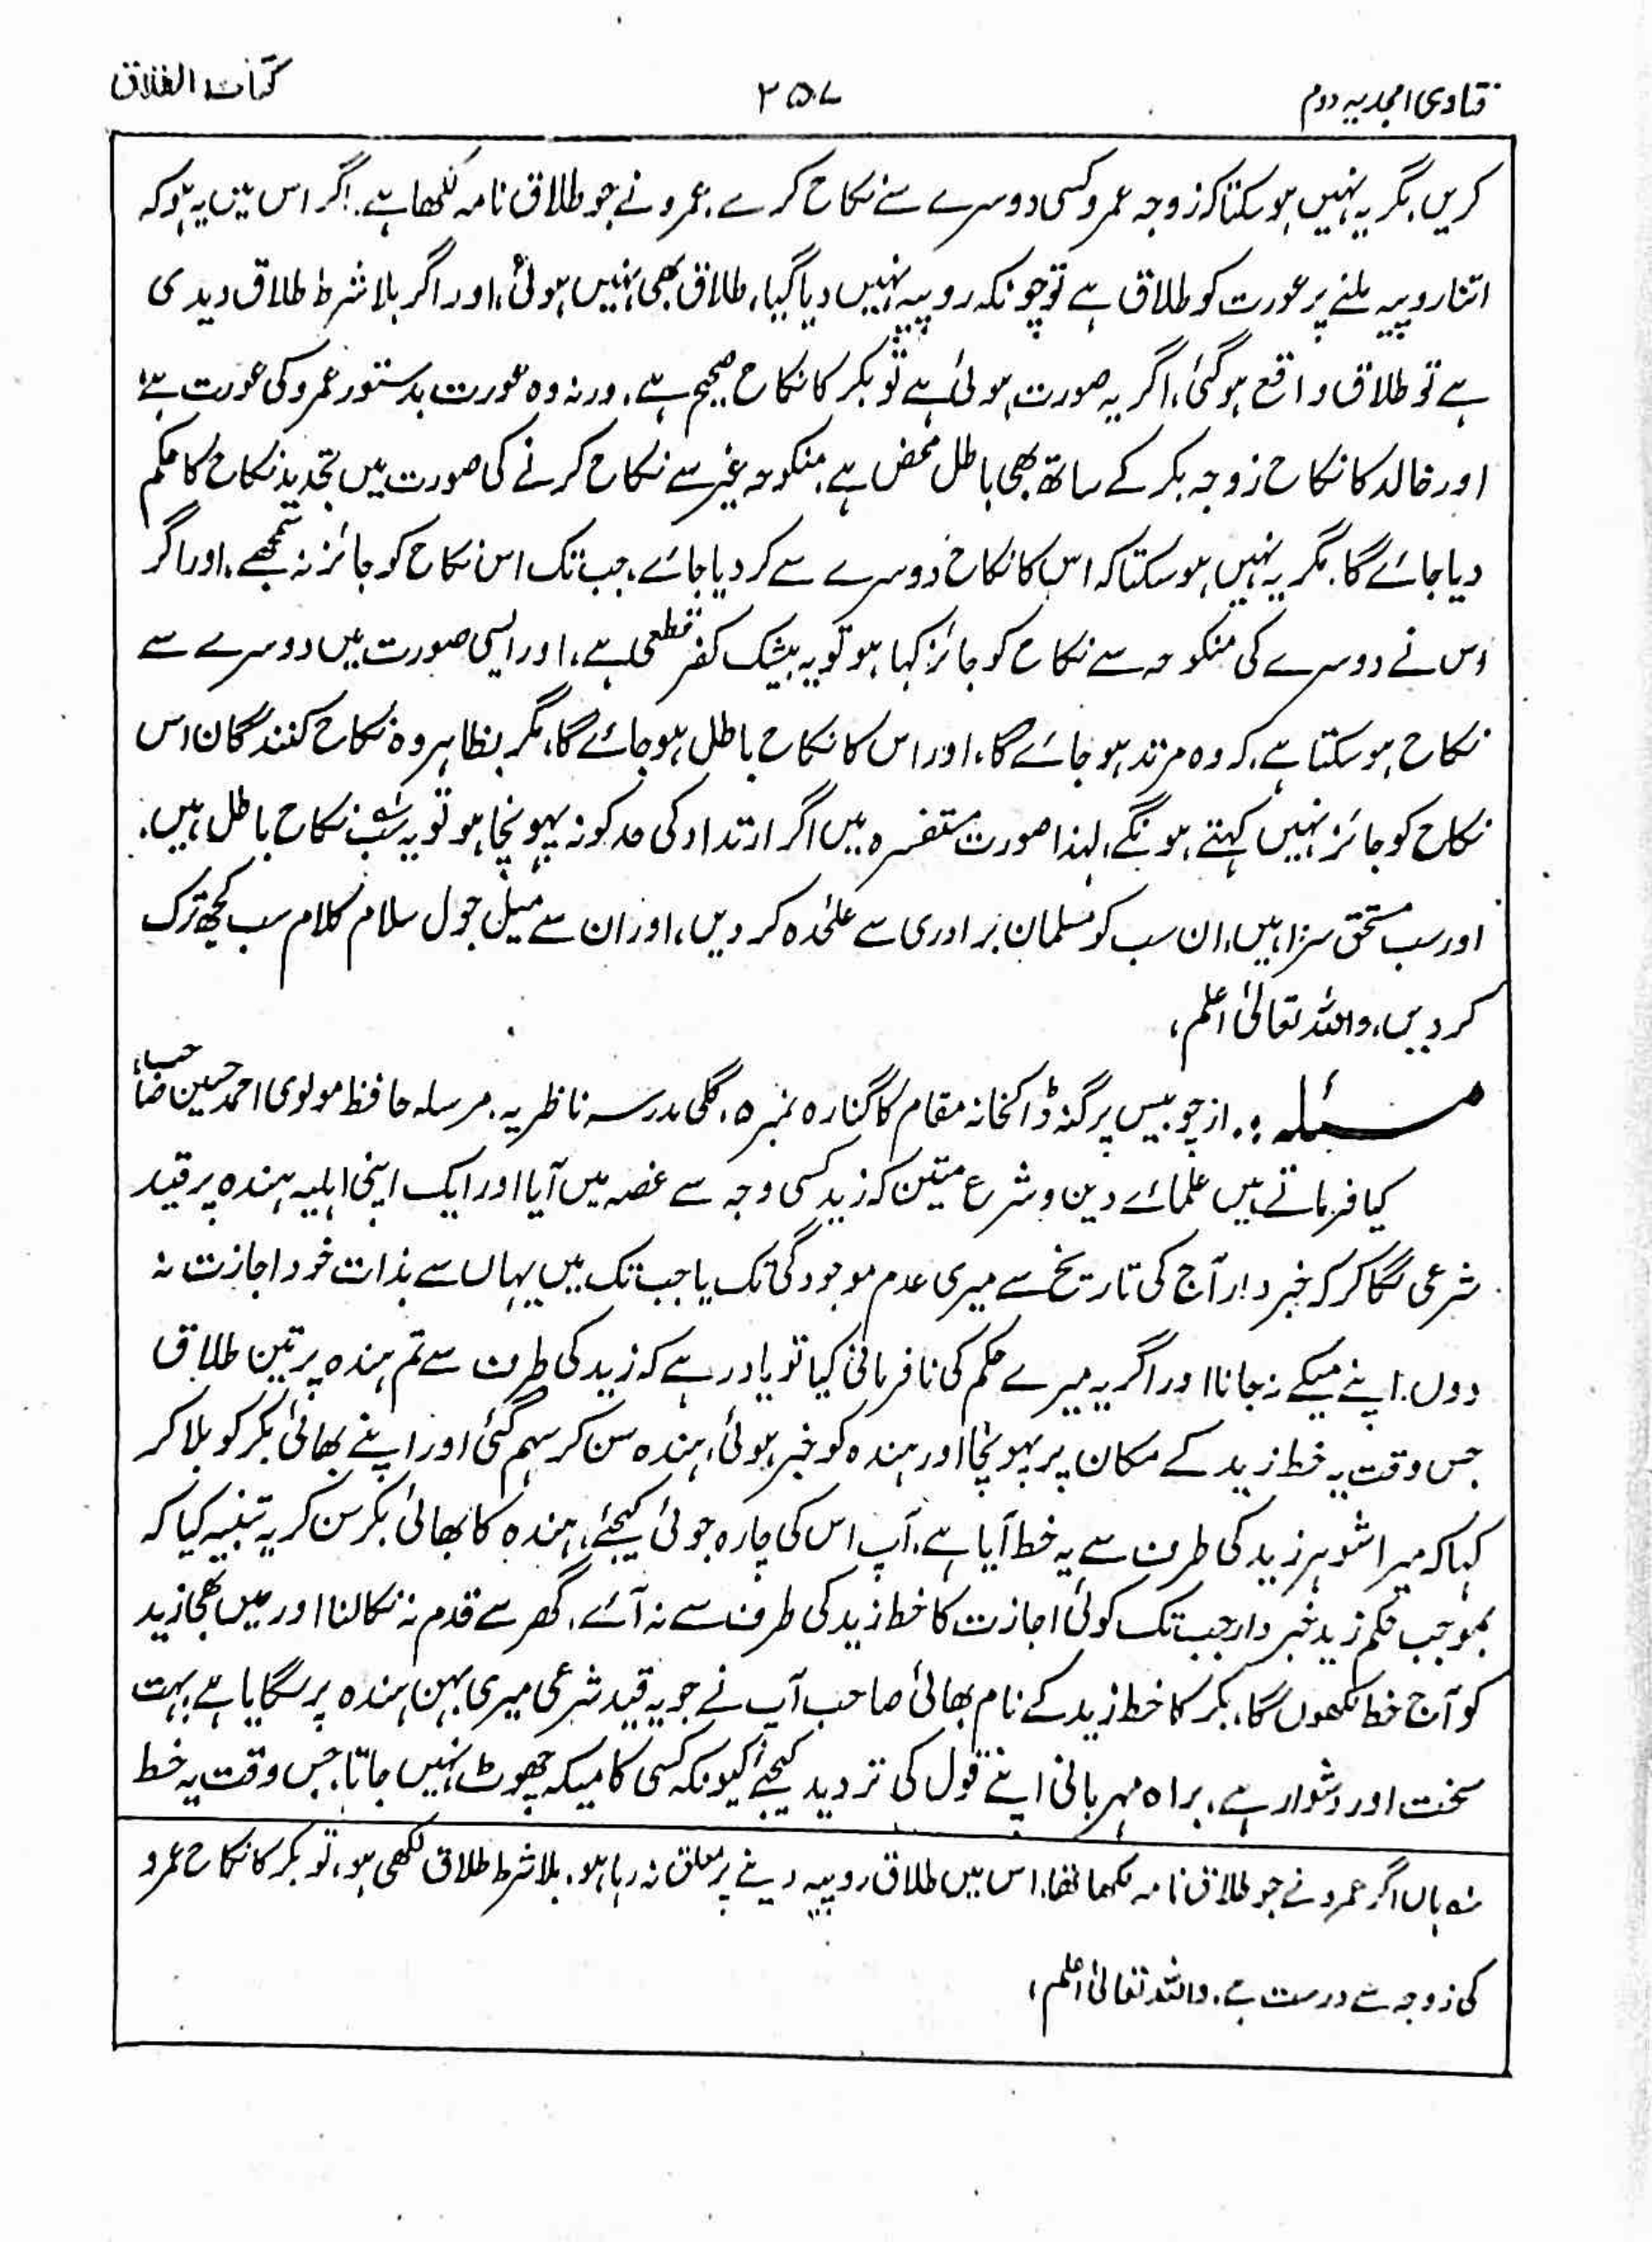 فتاوی امجدیہ دوم
۲۵۷
کتاب الطلاق
کریں، مگر یہ نہیں ہو سکتا کہ زوجہ عمرو کسی دوسرے سے نکاح کرے، عمرو نے جو طلاق نامہ لکھا ہے، اگر اس میں یہ ہو کہ
اتنا روپیہ ملنے پر عورت کو طلاق ہے تو چونکہ روپیہ نہیں دیا گیا، طلاق بھی نہیں ہوئی، اور اگر بلا شرط طلاق دیدی
ہے تو طلاق واقع ہو گئی، اگر یہ صورت ہوئی ہے تو بکر کا نکاح صحیح ہے، ورنہ وہ عورت بدستور عمرو کی عورت ہے،
اور خالد کا نکاح زوجہ بکر کے ساتھ بھی باطل محض ہے، منکوحہ غیر سے نکاح کرنے کی صورت میں تجدید نکاح کا حکم
دیا جائے گا، مگر یہ نہیں ہو سکتا کہ اس کا نکاح دوسرے سے کر دیا جائے، جب تک اس نکاح کو جائز نہ سمجھے، اور اگر
اس نے دوسرے کی منکوحہ سے نکاح کو جائز کہا ہو تو یہ بیشک کفر قطعی ہے، اور ایسی صورت میں دوسرے سے
نکاح ہو سکتا ہے، کہ وہ مرتد ہو جائے گا، اور اس کا نکاح باطل ہو جائے گا، مگر بظاہر وہ نکاح کنندگان اس
نکاح کو جائز نہیں کہتے ہونگے، لہذا صورت مستفسرہ میں اگر ارتداد کی حد کو نہ پہونچا ہو تو یہ سب نکاح باطل ہیں،
اور سب مستحق سزا ہیں، ان سب کو مسلمان برادری سے علٰحدہ کر دیں، اور ان سے میل جول سلام کلام سب کچھ ترک
کر دیں، واللہ تعالیٰ اعلم،
مسئلہ :۔ از چوبیس پرگنہ ڈاکخانہ مقام کاگنارہ نمبر ۵، گلی مدرسہ ناظریہ، مرسلہ حافظ مولوی احمد حسین صاحب،
کیا فرماتے ہیں علمائے دین و شرع متین کہ زید کسی وجہ سے غصہ میں آیا اور ایک اپنی اہلیہ ہندہ پر قید
شرعی لگا کر کہ خبردار آج کی تاریخ سے میری عدم موجودگی تک یا جب تک میں یہاں سے بذات خود اجازت نہ
دوں، اپنے میکے نہ جانا اور اگر یہ میرے حکم کی نافرمانی کیا تو یاد رہے کہ زید کی طرف سے تم ہندہ پر تین طلاق
جس وقت یہ خط زید کے مکان پر پہونچا اور ہندہ کو خبر ہوئی، ہندہ سن کر سہم گئی اور اپنے بھائی بکر کو بلا کر
کہا کہ میرا شوہر زید کی طرف سے یہ خط آیا ہے، آپ اس کی چارہ جوئی کیجئے، ہندہ کا بھائی بکر سن کر یہ تنبیہ کیا کہ
بموجب حکم زید خبردار جب تک کوئی اجازت کا خط زید کی طرف سے نہ آئے، گھر سے قدم نہ نکالنا اور میں بھی زید
کو آج خط لکھوں گا، بکر کا خط زید کے نام بھائی صاحب آپ نے جو یہ قید شرعی میری بہن ہندہ پر لگایا ہے بہت
سخت اور دشوار ہے، براہ مہربانی اپنے قول کی تردید کیجئے کیونکہ کسی کا میکہ چھوٹ نہیں جاتا، جس وقت یہ خط
ہاں اگر عمرو نے جو طلاق نامہ لکھا تھا، اس میں طلاق روپیہ دینے پر معلق نہ رہا ہو، بلا شرط طلاق لکھی ہو، تو بکر کا نکاح عمرو
کی زوجہ سے درست ہے، واللہ تعالیٰ اعلم،